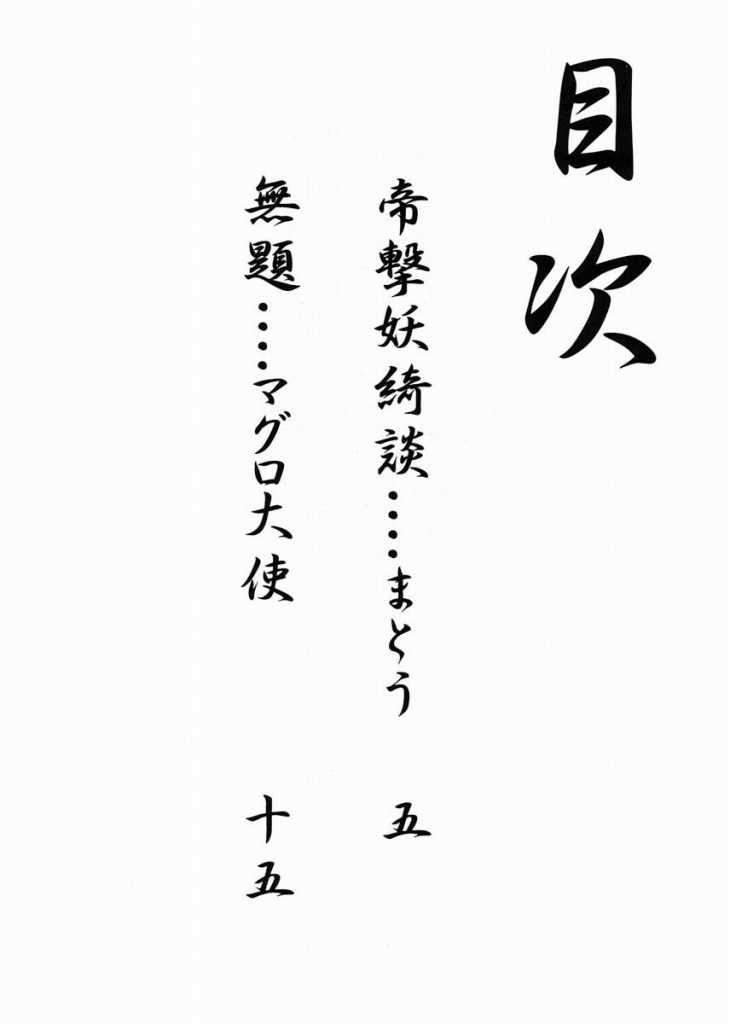 目次
帝撃妖綺談・・・・まとう　五
無題・・・・マグロ大使　十五